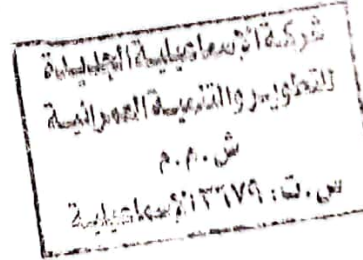 شركة الإسماعيلية الجديدة
للتطوير والتنمية العمرانية
ش.م.م
س.ت: ٣٦٦٧٩ الإسماعيلية